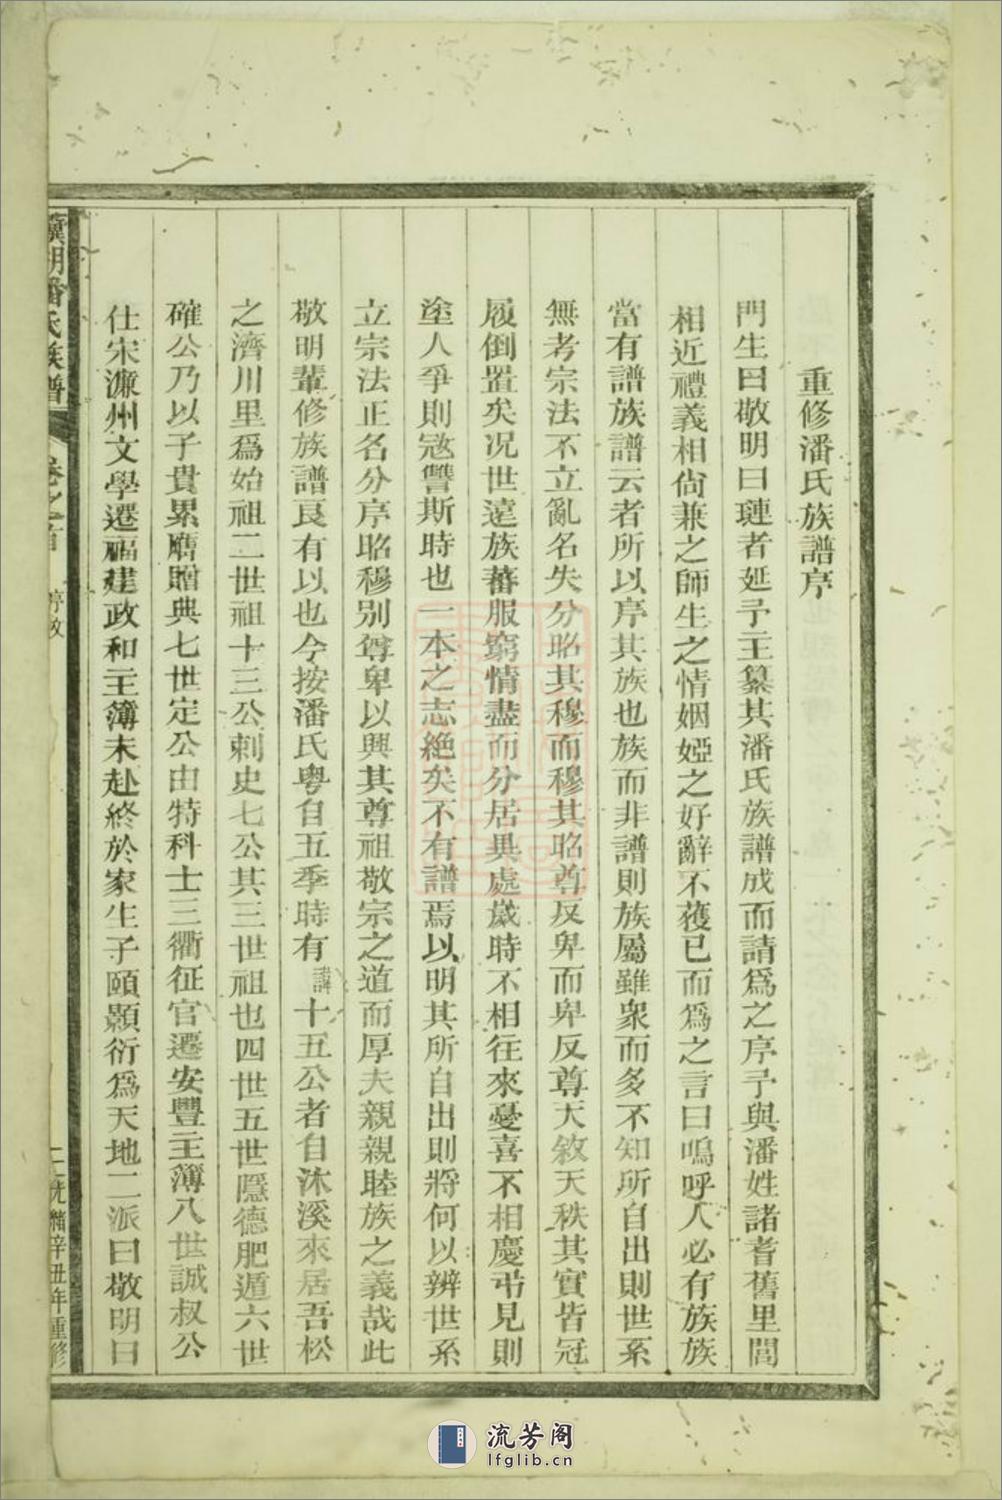 重修潘氏族譜序
門生曰敬明曰璉者延予主纂其潘氏族譜成而請爲之序予與潘姓諸耆舊里閭
相近禮義相尙兼之師生之情姻婭之好辭不獲已而爲之言曰嗚呼人必有族族
當有譜族譜云者所以序其族也族而非譜則族屬雖衆而多不知所自出則世系
無考宗法不立亂名失分昭其穆而穆其昭尊反卑而卑反尊天敘天秩其實皆冠
履倒置矣况世遠族蕃服窮情盡而分居異處歲時不相往來憂喜不相慶弔見則
塗人爭則寇讐斯時也一本之志絶矣不有譜焉以明其所自出則將何以辨世系
立宗法正名分序昭穆别尊卑以興其尊祖敬宗之道而厚夫親親睦族之義哉此
敬明輩修族譜良有以也今按潘氏粤自五季時有諱十五公者自沐溪來居吾松
之濟川里爲始祖二世祖十三公刺史七公其三世祖也四世五世隱德肥遁六世
確公乃以子貴累膺贈典七世定公由特科士三衢征官遷安豐主簿八世誠叔公
仕宋濂州文學遷福建政和主簿未赴終於家生子頤顥衍爲天地二派曰敬明曰
湖潘氏族譜
卷之首
序
二
光緒辛丑年重修
流芳阁
lfglib.cn